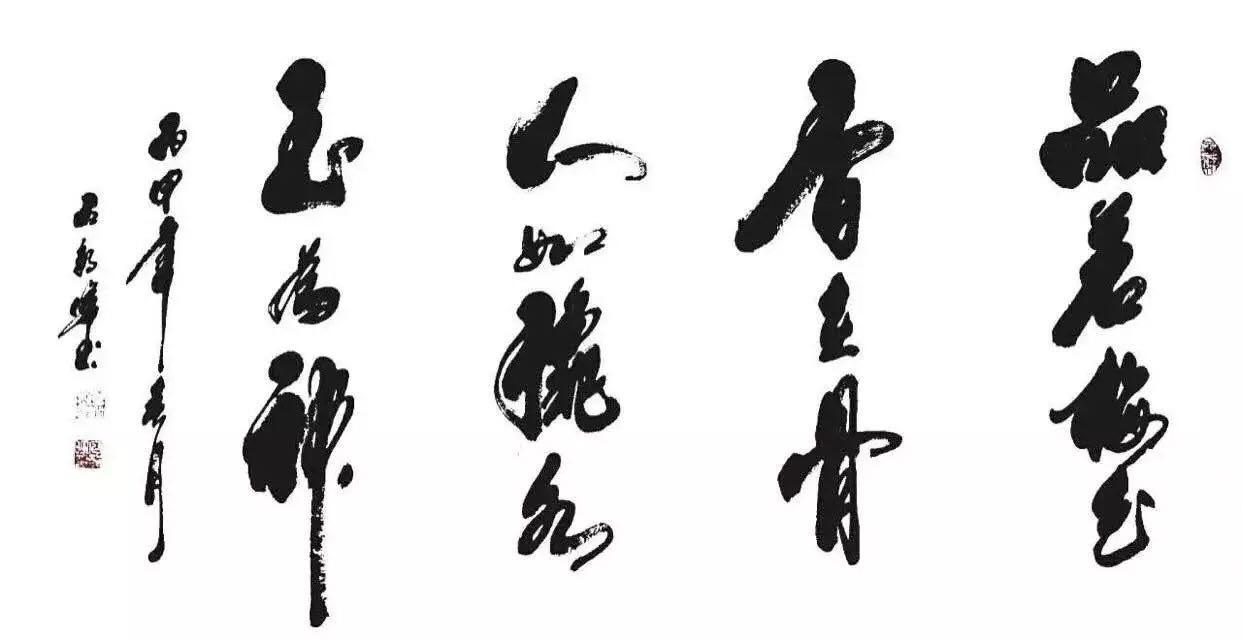 品若梅花
香在骨
人如秋水
玉为神
丙申年春月
石朝峰书